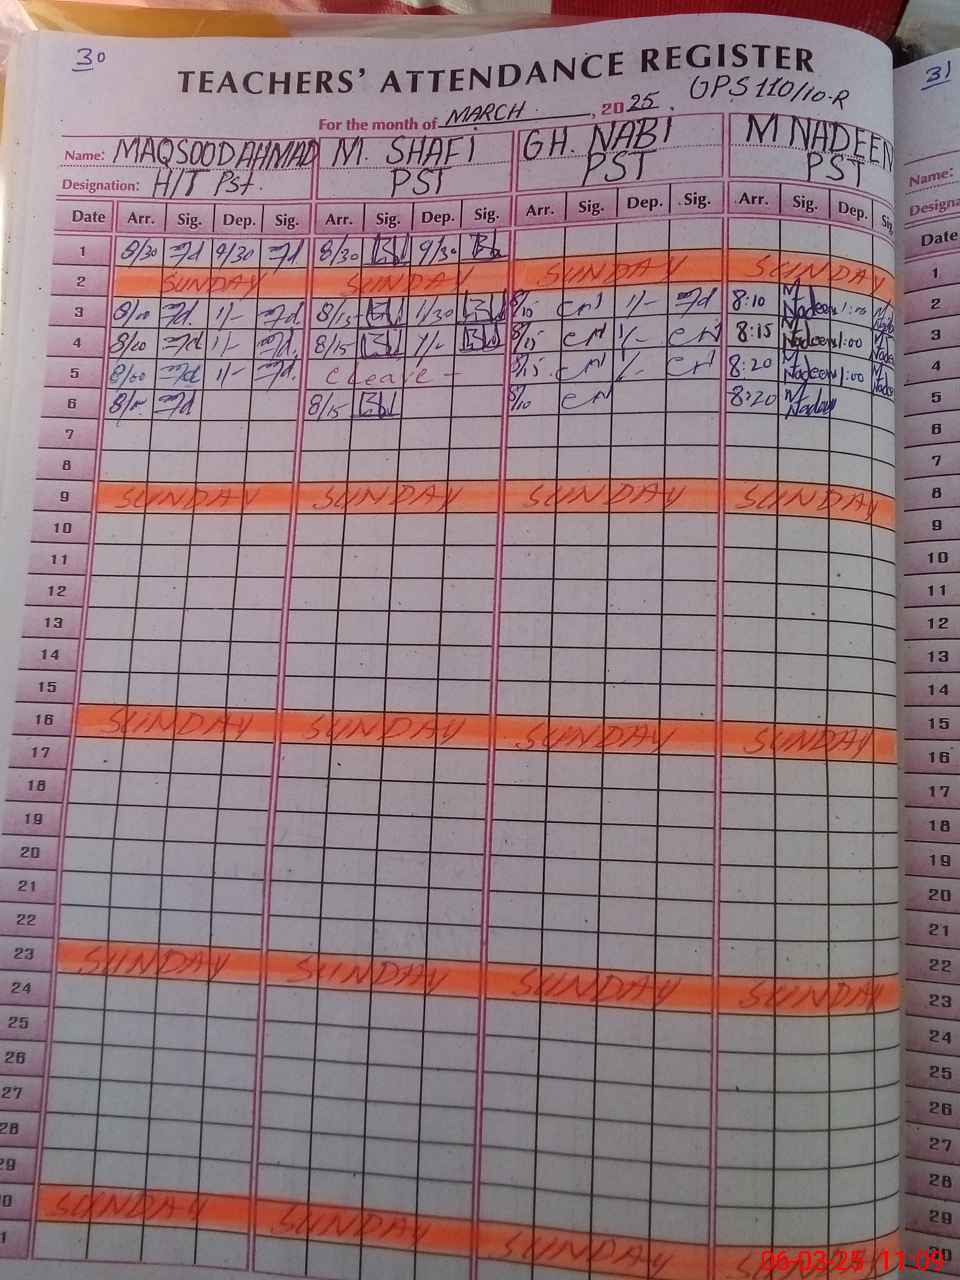 30
TEACHERS' ATTENDANCE REGISTER
GPS 110/10-R
For the month of MARCH, 2025.
Name: MAQSOOD AHMAD M. SHAFI GH. NABI M NADEEN
Designation: H/T Pst. PST PST PST
Date Arr. Sig. Dep. Sig. Arr. Sig. Dep. Sig. Arr. Sig. Dep. Sig. Arr. Sig. Dep.
1 8/30 9/30 8/30 9/30
2 SUNDAY SUNDAY SUNDAY SUNDAY
3 8/00 1/- 8/15 1/30 8/10 1/- 8:10 M Nadeen 1:00
4 8/00 1/- 8/15 1/- 8/15 1/- 8:15 M Nadeen 1:00
5 8/00 1/- C Leave 8/15 1/- 8:20 M Nadeen 1:00
6 8/15 8/10 8:20
7
8
9 SUNDAY SUNDAY SUNDAY SUNDAY
10
11
12
13
14
15
16 SUNDAY SUNDAY SUNDAY SUNDAY
17
18
19
20
21
22
23 SUNDAY SUNDAY SUNDAY SUNDAY
24
25
26
27
28
29
SUNDAY SUNDAY SUNDAY
31
Name:
Date
1
2
3
4
5
6
7
8
9
10
11
12
13
14
15
16
17
18
19
20
21
22
23
24
25
26
27
28
29
30
06-03-25 11:09